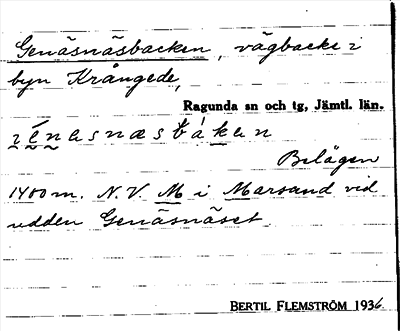 Genäsnäsbacken, vägbacke i
byn Krångede,
Ragunda sn och tg, Jämtl. län.
Belägen
1400 m. N.V. M i Marsand vid
udden Genäsnäset.
BERTIL FLEMSTRÖM 1936.